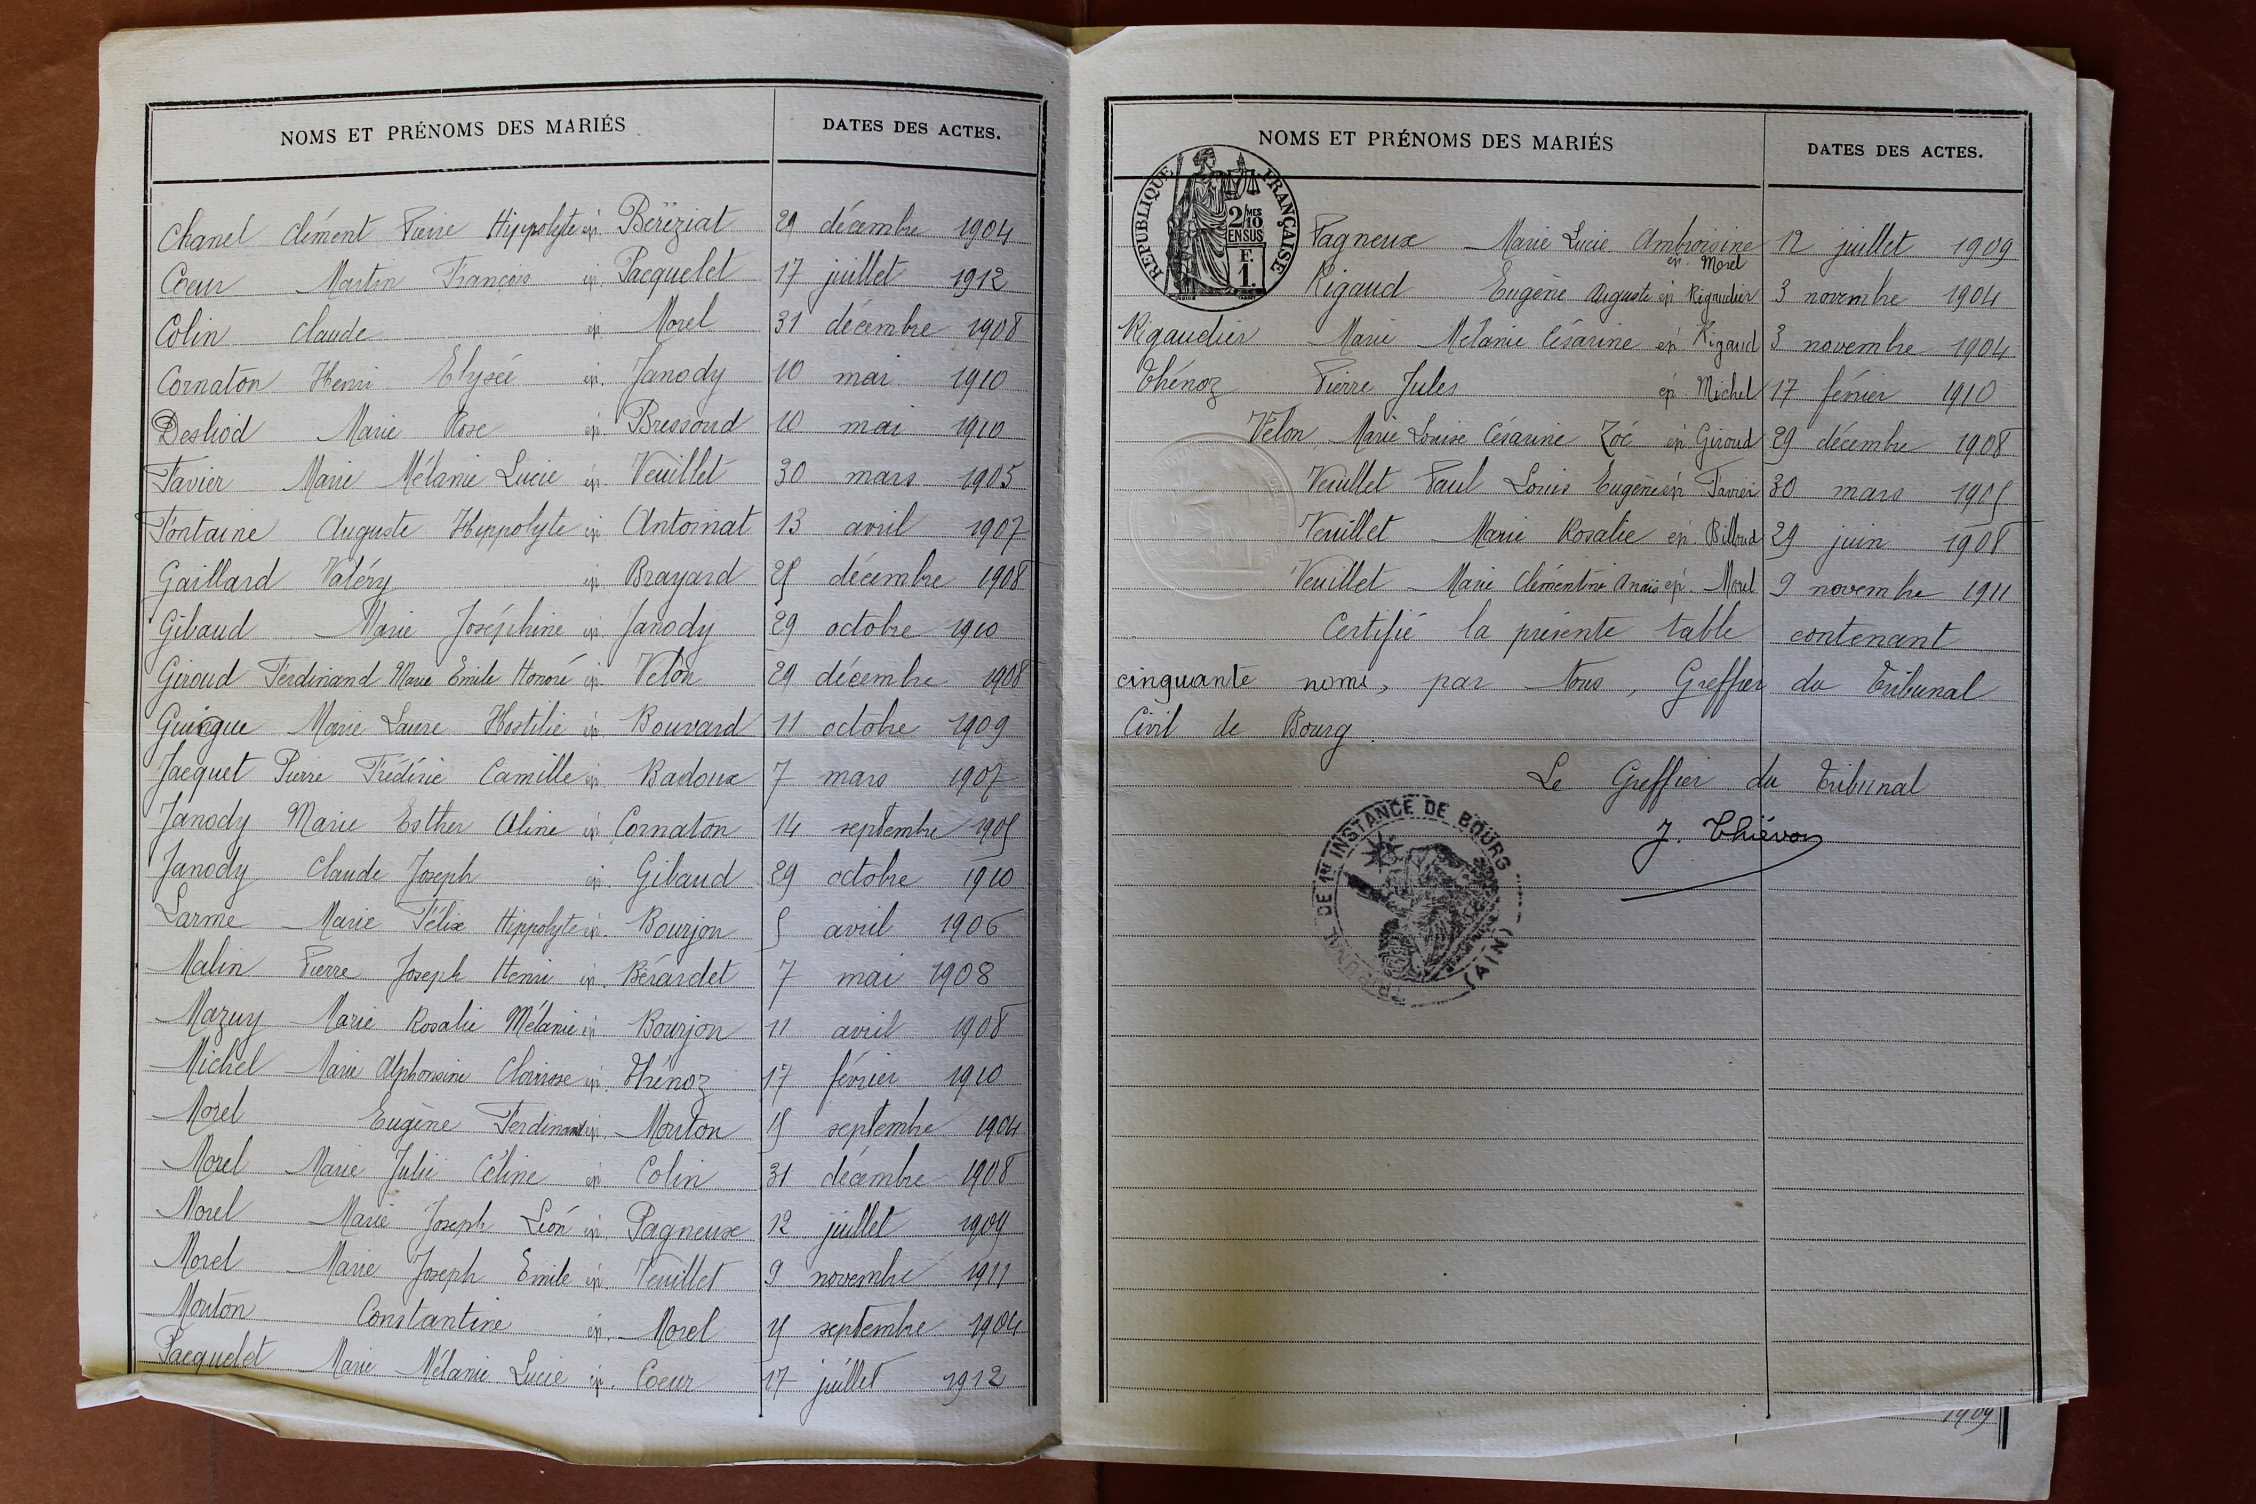 NOMS ET PRÉNOMS DES MARIÉS DATES DES ACTES.
Chanel Clément Pierre Hippolyte ép. Bereziat 29 décembre 1904
Coeur Martin François ép. Pacquelet 17 juillet 1912
Colin Claude ép. Morel 31 décembre 1908
Cornaton Henri Elysée ép. Janody 10 mai 1910
Desliod Marie Rose ép. Bressoud 10 mai 1910
Favier Marie Mélanie Lucie ép. Veuillet 30 mars 1905
Fontaine Auguste Hippolyte ép. Antoinat 13 avril 1907
Gaillard Valéry ép. Brayard 25 décembre 1908
Gibaud Marie Joséphine ép. Janody 29 octobre 1910
Giroud Ferdinand Marie Emile Honoré ép. Velon 29 décembre 1908
Guingue Marie Laure Hostilie ép. Bouvard 11 octobre 1909
Jacquet Pierre Frédéric Camille ép. Badoux 7 mars 1907
Janody Marie Esther Aline ép. Cornaton 14 septembre 1905
Janody Claude Joseph ép. Gibaud 29 octobre 1910
Larme Marie Félix Hippolyte ép. Bourjon 5 avril 1906
Malin Pierre Joseph Henri ép. Bérardet 7 mai 1908
Mazuy Marie Rosalie Mélanie ép. Bourjon 11 avril 1908
Michel Marie Alphonsine ép. Thénoz 17 février 1910
Morel Eugène Ferdinand ép. Mouton 15 septembre 1904
Morel Marie Julie Céline ép. Colin 31 décembre 1908
Morel Marie Joseph Léon ép. Pagneux 12 juillet 1909
Morel Marie Joseph Emile ép. Veuillet 9 novembre 1911
Mouton Constantine ép. Morel 15 septembre 1904
Pacquelet Marie Mélanie Lucie ép. Coeur 17 juillet 1912
NOMS ET PRÉNOMS DES MARIÉS DATES DES ACTES.
RÉPUBLIQUE FRANÇAISE
2/10 MES
EN SUS
F.
1.
Pagneux Marie Lucie Ambroisine 12 juillet 1909
ép. Morel
Rigaud Eugène Auguste ép. Rigaudier 3 novembre 1904
Rigaudier Marie Mélanie Césarine ép. Rigaud 3 novembre 1904
Thénoz Pierre Jules ép. Michel 17 février 1910
Velon Marie Louise Césarine Zoé ép. Giroud 29 décembre 1908
Veuillet Paul Louis Eugène ép. Favier 30 mars 1905
Veuillet Marie Rosalie ép. Billoud 29 juin 1908
Veuillet Marie Clémentine Anaïs ép. Morel 9 novembre 1911
Certifié la présente table contenant
cinquante noms, par Nous, Greffier du Tribunal
Civil de Bourg.
Le Greffier du Tribunal
J. Thiévon
TRIBUNAL DE 1RE INSTANCE DE BOURG
(AIN)
1909